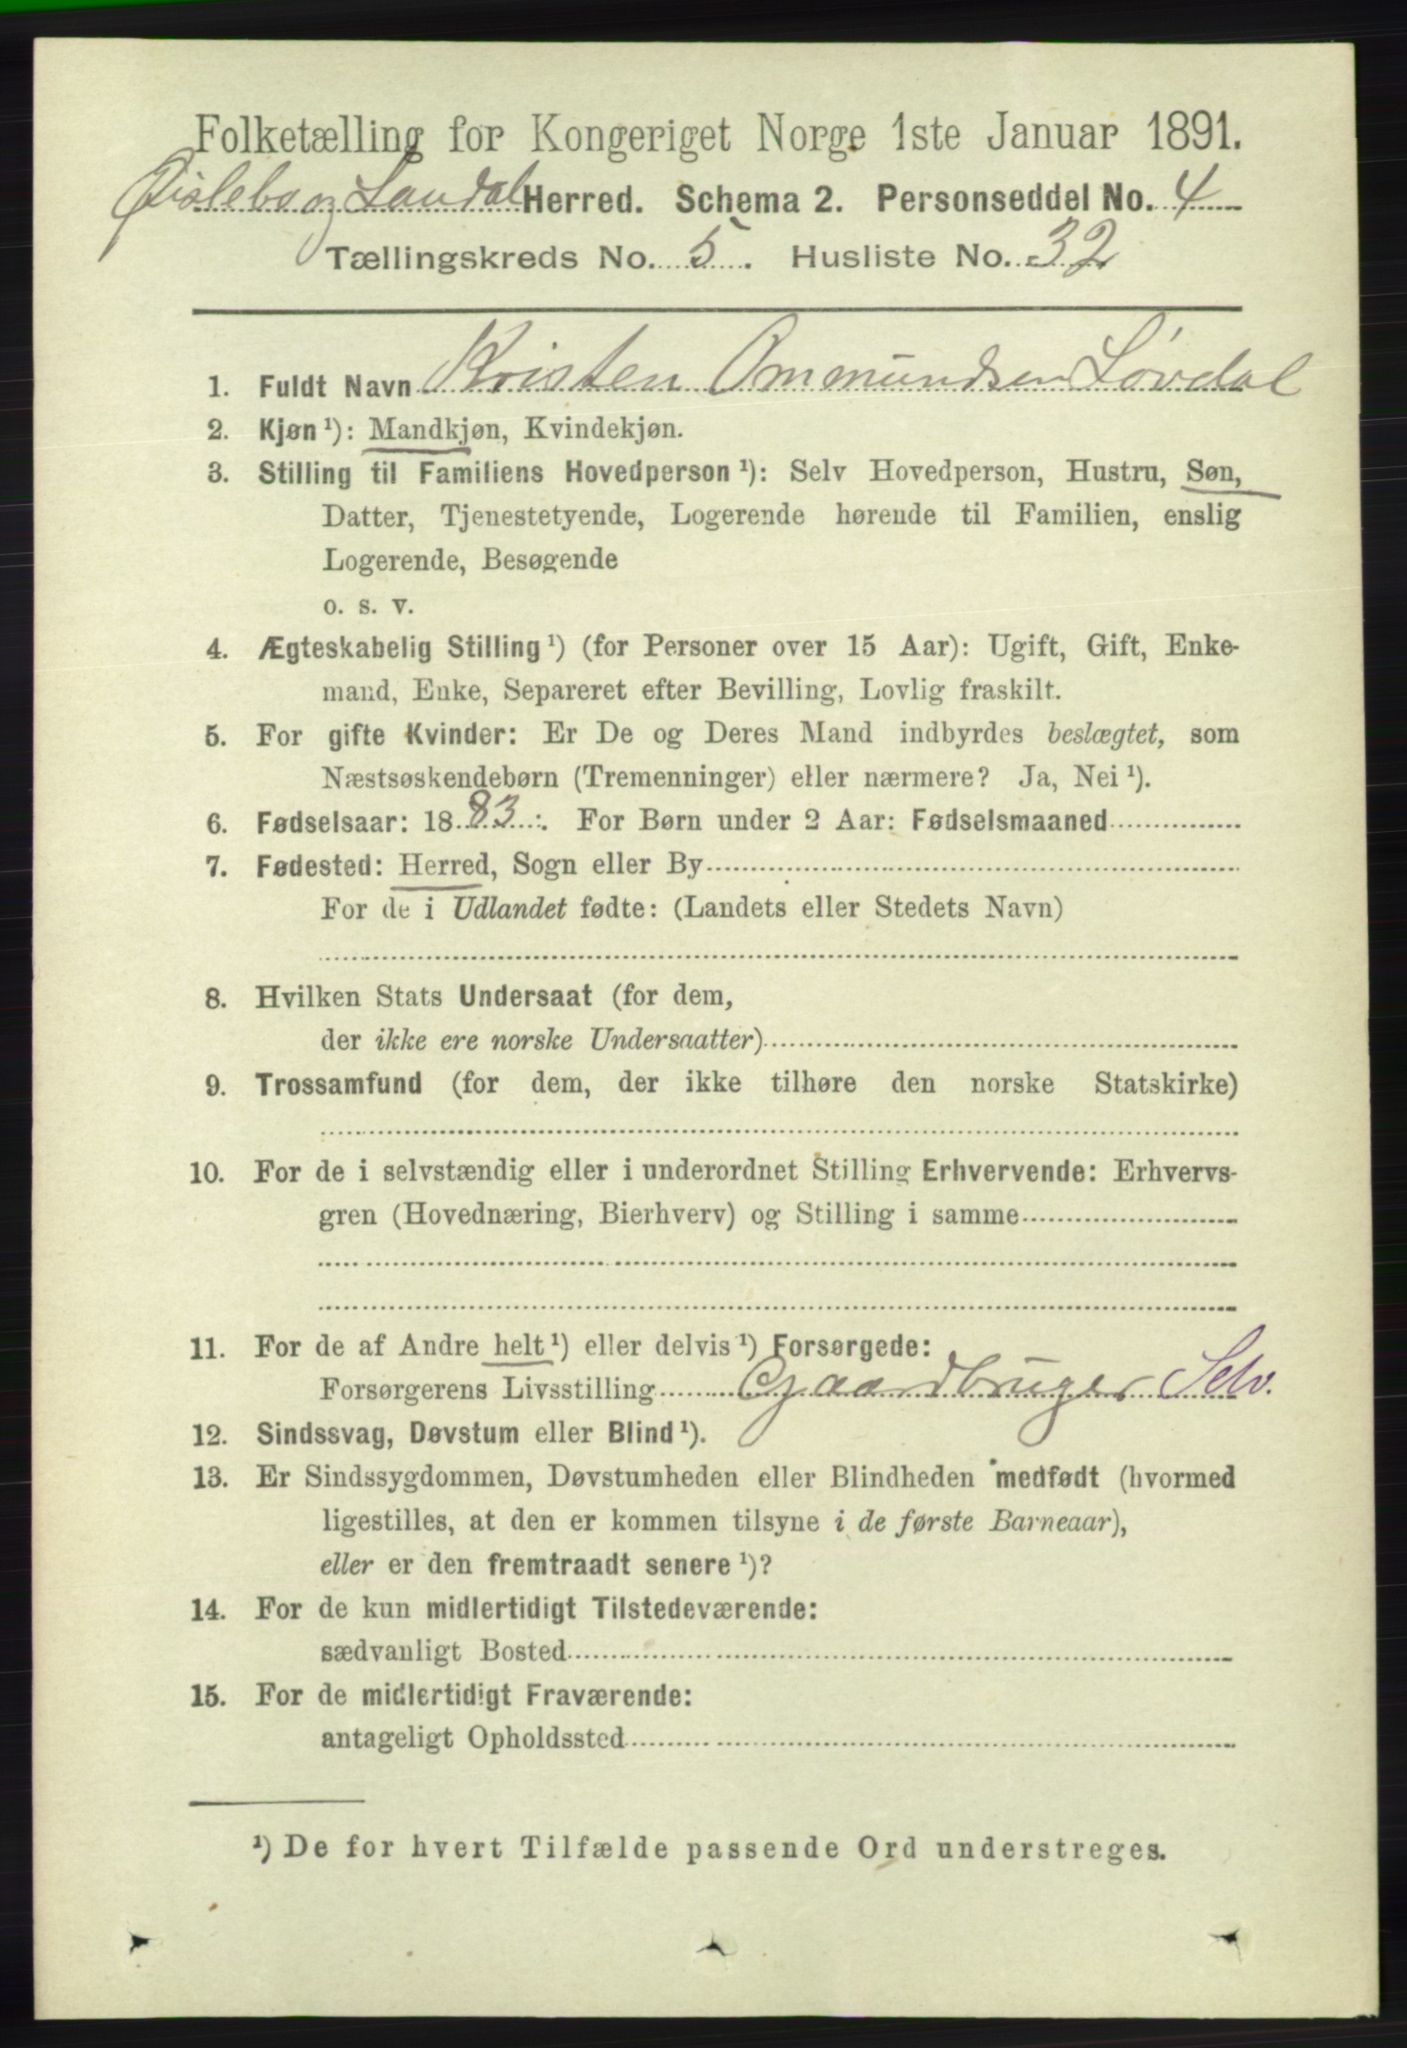 Folketælling for Kongeriget Norge 1ste Januar 1891.
Øislebø og Laudal Herred. Schema 2. Personseddel No. 4
Tællingskreds No. 5. Husliste No. 32
1. Fuldt Navn Kristen Ommundsen Løvdal
2. Kjøn ¹): Mandkjøn, Kvindekjøn.
3. Stilling til Familiens Hovedperson ¹): Selv Hovedperson, Hustru, Søn,
Datter, Tjenestetyende, Logerende hørende til Familien, enslig
Logerende, Besøgende
o. s. v.
4. Ægteskabelig Stilling ¹) (for Personer over 15 Aar): Ugift, Gift, Enke-
mand, Enke, Separeret efter Bevilling, Lovlig fraskilt.
5. For gifte Kvinder: Er De og Deres Mand indbyrdes beslægtet, som
Næstsøskendebørn (Tremenninger) eller nærmere? Ja, Nei ¹).
6. Fødselsaar: 1883. For Børn under 2 Aar: Fødselsmaaned
7. Fødested: Herred, Sogn eller By
For de i Udlandet fødte: (Landets eller Stedets Navn)
8. Hvilken Stats Undersaat (for dem,
der ikke ere norske Undersaatter)
9. Trossamfund (for dem, der ikke tilhøre den norske Statskirke)
10. For de i selvstændig eller i underordnet Stilling Erhvervende: Erhvervs-
gren (Hovednæring, Bierhverv) og Stilling i samme
11. For de af Andre helt ¹) eller delvis ¹) Forsørgede:
Forsørgerens Livsstilling Gaardbruger Selv.
12. Sindssvag, Døvstum eller Blind ¹).
13. Er Sindssygdommen, Døvstumheden eller Blindheden medfødt (hvormed
ligestilles, at den er kommen tilsyne i de første Barneaar),
eller er den fremtraadt senere ¹)?
14. For de kun midlertidigt Tilstedeværende:
sædvanligt Bosted
15. For de midlertidigt Fraværende:
antageligt Opholdssted
¹) De for hvert Tilfælde passende Ord understreges.